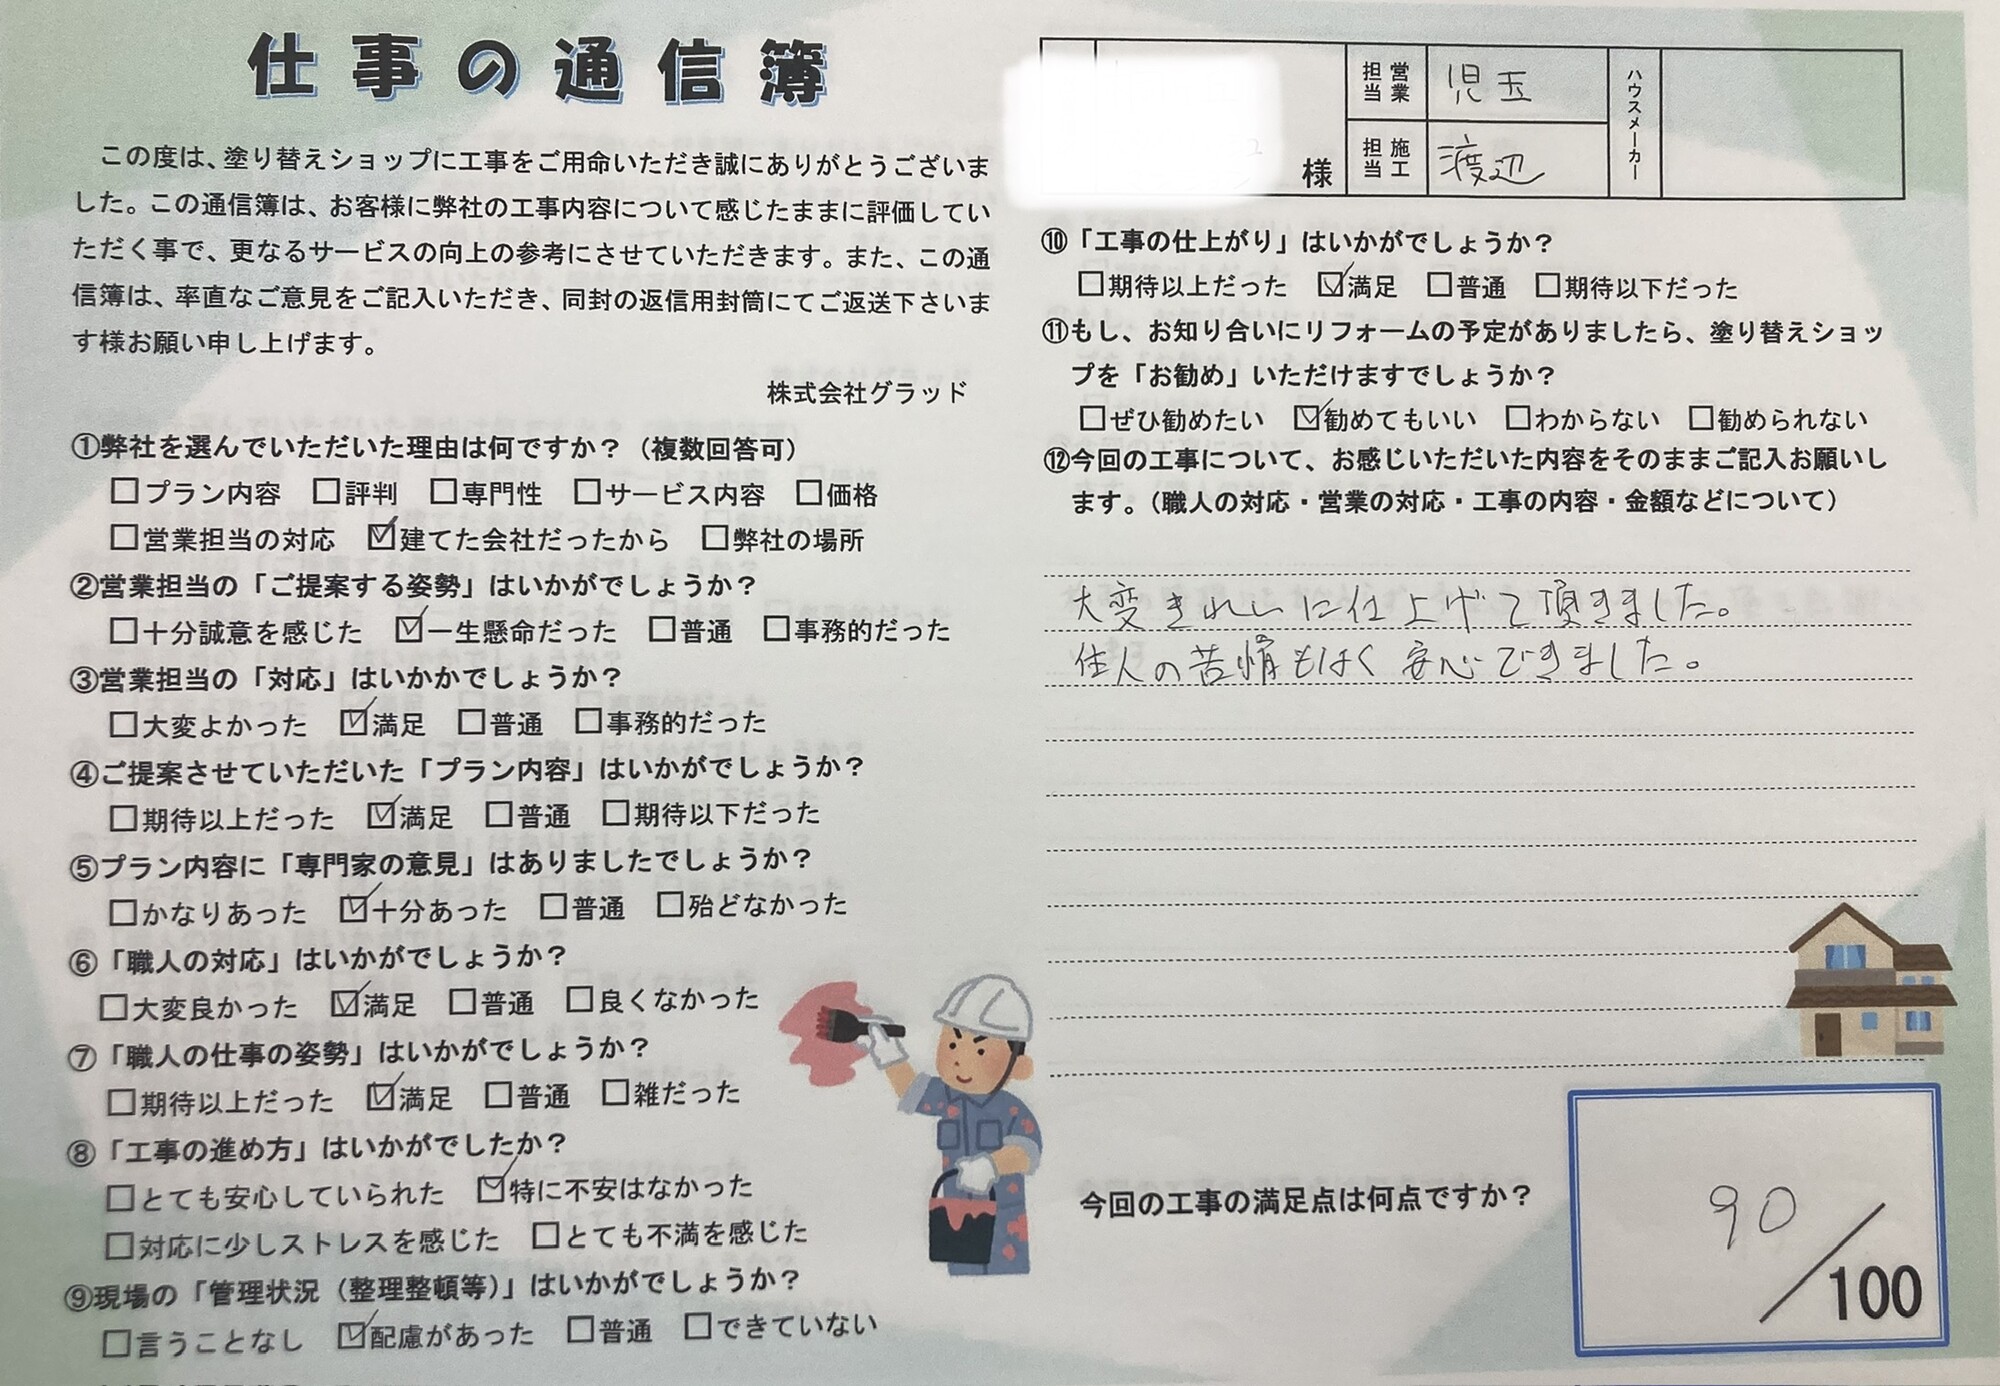 仕事の通信簿
この度は、塗り替えショップに工事をご用命いただき誠にありがとうございま
した。この通信簿は、お客様に弊社の工事内容について感じたままに評価してい
ただく事で、更なるサービスの向上の参考にさせていただきます。また、この通
信簿は、率直なご意見をご記入いただき、同封の返信用封筒にてご返送下さいま
す様お願い申し上げます。
株式会社グラッド
①弊社を選んでいただいた理由は何ですか？（複数回答可）
□プラン内容 □評判 □専門性 □サービス内容 □価格
□営業担当の対応 ☑建てた会社だったから □弊社の場所
②営業担当の「ご提案する姿勢」はいかがでしょうか？
□十分誠意を感じた ☑一生懸命だった □普通 □事務的だった
③営業担当の「対応」はいかかでしょうか？
□大変よかった ☑満足 □普通 □事務的だった
④ご提案させていただいた「プラン内容」はいかがでしょうか？
□期待以上だった ☑満足 □普通 □期待以下だった
⑤プラン内容に「専門家の意見」はありましたでしょうか？
□かなりあった ☑十分あった □普通 □殆どなかった
⑥「職人の対応」はいかがでしょうか？
□大変良かった ☑満足 □普通 □良くなかった
⑦「職人の仕事の姿勢」はいかがでしょうか？
□期待以上だった ☑満足 □普通 □雑だった
⑧「工事の進め方」はいかがでしたか？
□とても安心していられた ☑特に不安はなかった
□対応に少しストレスを感じた □とても不満を感じた
⑨現場の「管理状況（整理整頓等）」はいかがでしょうか？
□言うことなし ☑配慮があった □普通 □できていない
様
営業担当 児玉
施工担当 渡辺
ハウスメーカー
⑩「工事の仕上がり」はいかがでしょうか？
□期待以上だった ☑満足 □普通 □期待以下だった
⑪もし、お知り合いにリフォームの予定がありましたら、塗り替えショッ
プを「お勧め」いただけますでしょうか？
□ぜひ勧めたい ☑勧めてもいい □わからない □勧められない
⑫今回の工事について、お感じいただいた内容をそのままご記入お願いし
ます。（職人の対応・営業の対応・工事の内容・金額などについて）
大変きれいに仕上げて頂きました。
住人の苦情もなく安心できました。
今回の工事の満足点は何点ですか？
90／100